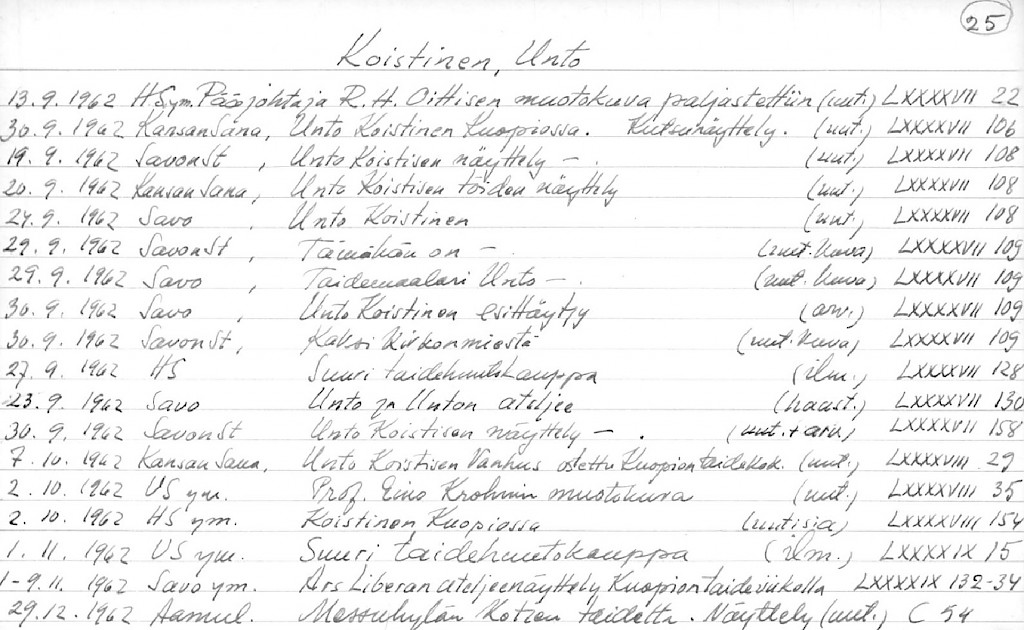 25
Koistinen, Unto
13.9.1962 HSym. Pääjohtaja R.H. Oittisen muotokuva paljastettiin (uut.) LXXXXVII 22
30.9.1962 KansanSana, Unto Koistinen Kuopiossa. Kutsunäyttely. (uut.) LXXXXVII 106
19.9.1962 SavonSt , Unto Koistisen näyttely - . (uut.) LXXXXVII 108
20.9.1962 KansanSana, Unto Koistisen töiden näyttely (uut.) LXXXXVII 108
27.9.1962 Savo , Unto Koistinen (uut.) LXXXXVII 108
29.9.1962 SavonSt , Tämähän on - (uut.kuva) LXXXXVII 109
29.9.1962 Savo , Taidemaalari Unto - . (uut.kuva) LXXXXVII 109
30.9.1962 Savo , Unto Koistinen esittäytyy (arv.) LXXXXVII 109
30.9.1962 SavonSt , Kaksi Kirkonmiestä (uut.kuva) LXXXXVII 109
27.9.1962 HS Suuri taidehuutokauppa (ilm.) LXXXXVII 128
23.9.1962 Savo Unto ja Unton ateljee (haast.) LXXXXVII 130
30.9.1962 SavonSt Unto Koistisen näyttely - . (uut.+arv.) LXXXXVII 158
7.10.1962 KansanSana, Unto Koistisen Vanhus ostettu Kuopion taidekok. (uut.) LXXXXVIII 29
2.10.1962 US ym. Prof. Eino Krohnin muotokuva (uut.) LXXXXVIII 35
2.10.1962 HS ym. Koistinen Kuopiossa (uutisia) LXXXXVIII 154
1.11.1962 US ym. Suuri taidehuutokauppa (ilm.) LXXXXIX 15
1-9.11.1962 Savo ym. Ars Liberan ateljeenäyttely Kuopion taideviikolla LXXXXIX 132-34
29.12.1962 Aamul. Messukylän Kotien taidetta. Näyttely (uut.) C 54